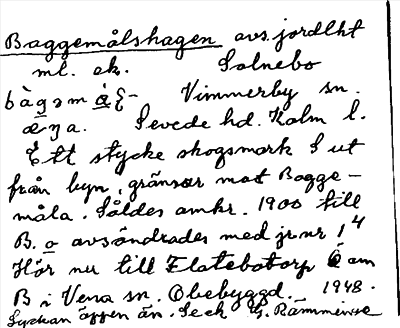 Baggemålshagen avs. jordlht
ml. ek. Solnebo
bàgəm Vimmerby sn.
Sevede hd. Kalm l.
Ett stycke skogsmark S ut
från byn, gränsar mot Bagge-
måla. Såldes omkr. 1900 till
B. o avsöndrades med jr nr 1 4
Hör nu till Flatebotorp
B i Vena sn. Obebyggd. 1948.
Lyckan öppen än. Se ck G. Rämminge